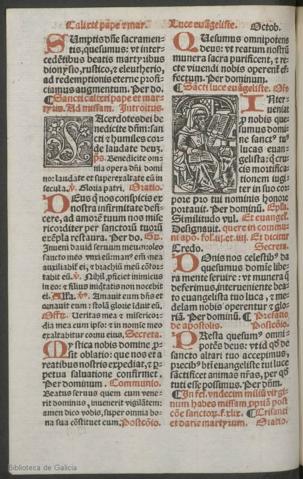 Calixti pape et mar.
Luce euãgeliste.
Octob.
SUmptis dñe sacramen-
tis, quesumus: vt inter-
cedẽtibus beatis martyribus
dionysio, rustico, et eleutherio,
ad redemptionis eterne profi-
ciamus augmentum. Per do.
Sancti calixti pape et mar-
tyris. Ad missam. Introitus.
SAcerdotes dei be
nedicite dñm: san
cti et humiles cor
de laudate deuz.
ps. Benedicite om-
nia opera dñi domi
no: laudate et superexaltate eũ in
secula. v. Gloria patri. Oratio.
DEus q nos conspicis ex
nostra infirmitate defi-
cere, ad amorẽ tuum nos mise
ricorditer per sanctorũ tuorũ
exẽpla restaura. Per do. Gr.
Inueni dauid seruum meũ: oleo
sancto meo vnxi eum: manꝰ em̃ mea
auxiliabit ei, et brachiũ meũ cõfor-
tabit eũ. v. Nihil ꝓficiet inimicus
in eo: et filius iniq̃tatis non nocebit
ei. Alla. v. Amauit eum dñs et
ornauit eum: stolã glorie induit eũ.
Offr. Veritas mea et misericor-
dia mea cum ipso: et in nomĩe meo
exaltabitur cornu eius. Secreta.
MYstica nobis domine pro
sit oblatio: que nos et a
reatibus nostris expediat, et p
petua saluatione confirmet.
Per dominum. Communio.
Beatus seruus quem cum vene-
rit dominus, inuenerit vigilãtem:
amen dico vobis, super omnia bo-
na sua cõstituet eum. Postcõio.
QUesumus omnipotens
deus: vt reatum nostrũ
munera sacra purificent, et re-
cte viuendi nobis operent̃ ef-
fectum. Per dominum.
Sãcti luce euãgeliste. Oro.
INter-
ueniat
ꝓ nobis que
sumus domi
ne sanctꝰ tuꝰ
lucas euan-
gelista: q̃ cru-
cis mortifica-
tionem iugi-
ter in suo cor-
pore pro tui nominis honore
portauit. Per dominũ. Epla.
Similitudo vul. Et euangel.
Designauit. quere in commu
Et dicitur
Credo. Secreta.
DOnis nos celestibꝰ da
quesumus domie libe-
ra mente seruire: vt munera q̃
deferimus, interueniente bea-
to euangelista tuo luca, et me-
delam nobis operentur et glo-
riã. Per dominũ. Prefatio
de apostolis. Postcõio.
PResta quesumꝰ omni-
potẽs deus: vt id qđ de
sancto altari tuo accepimus,
precibꝰ bt̃i euangeliste tui luce
sãctificet animas nr̃as, per qđ
tuti esse possimus. Per dñm.
In fe. vndecim miliũ virgi
num habes missam
Crisanti
et darie martyrum. Oratio.
Biblioteca de Galicia